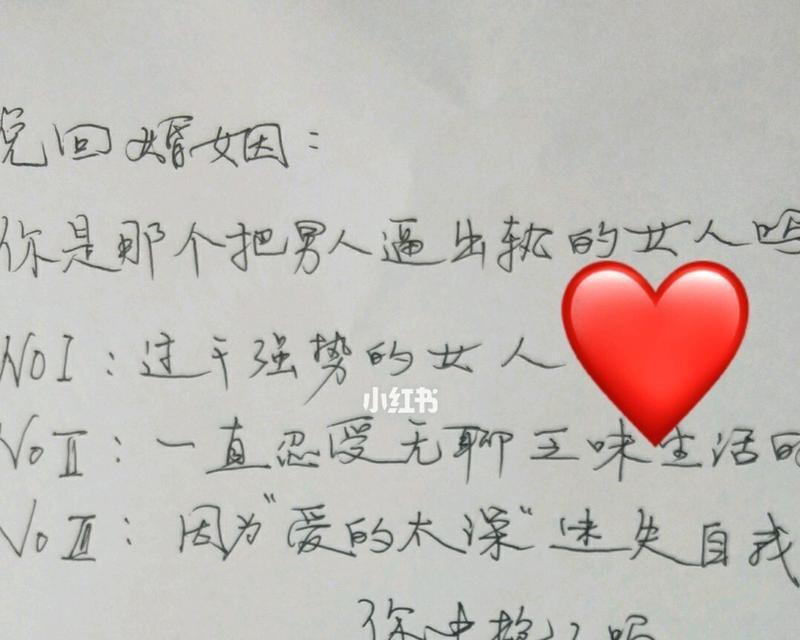 挽回婚姻：
你是那个把男人逼出轨的女人吗
NO I：过于强势的女人
小红书
No II：一直忍受无聊乏味生活的
No III：因为"爱的太深"迷失自我
你中招了吗